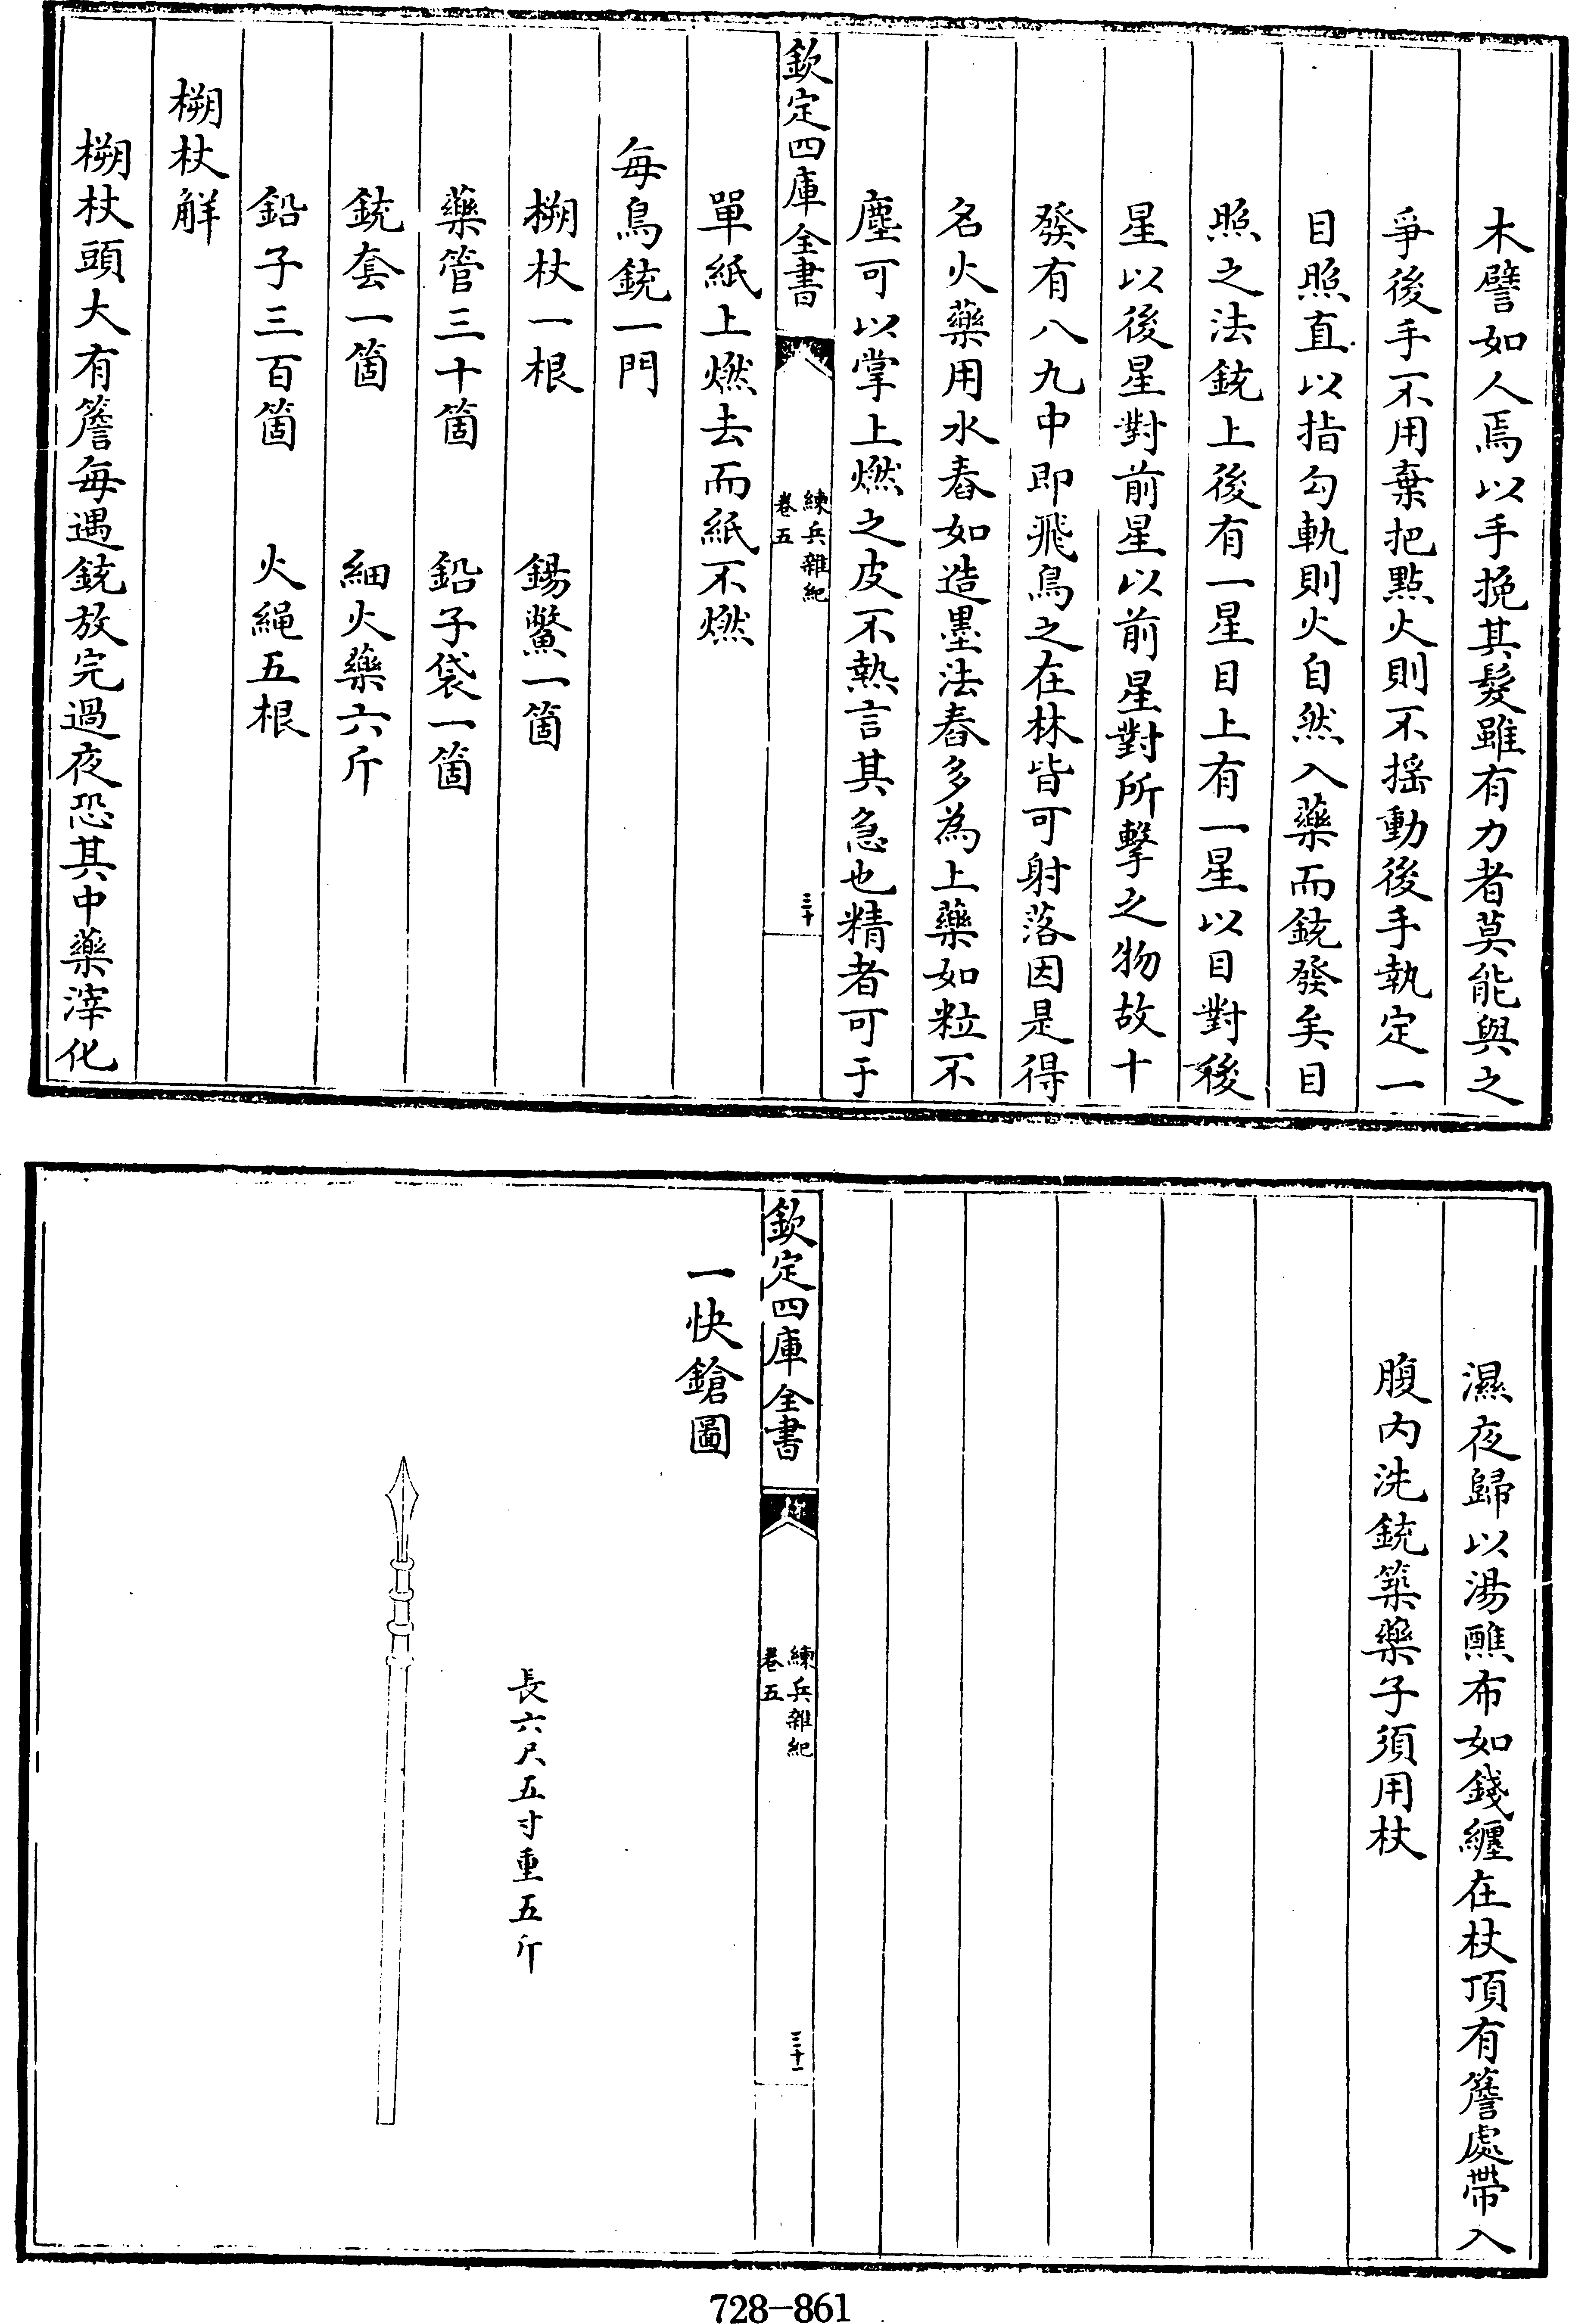 木譬如人焉以手挽其髮雖有力者莫能與之
爭後手不用棄把點火則不揺動後手執定一
目照直以指勾軌則火自然入藥而銃發矣目
照之法銃上後有一星目上有一星以目對後
星以後星對前星以前星對所擊之物故十
發有八九中即飛鳥之在林皆可射落因是得
名火藥用水舂如造墨法舂多為上藥如粒不
塵可以掌上燃之皮不熱言其急也精者可于
欽定四庫全書
練兵雜紀
卷五
三十
單紙上燃去而紙不燃
每鳥銃一門
槊杖一根 錫鱉一箇
藥管三十箇 鉛子袋一箇
銃套一箇 細火藥六斤
鉛子三百箇 火繩五根
槊杖解
槊杖頭大有簷每遇銃放完過夜恐其中藥滓化
濕夜歸以湯醮布如錢纒在杖頂有簷處帶入
腹内洗銃築藥子須用杖
欽定四庫全書
練兵雜紀
卷五
三十一
一快鎗圖
長六尺五寸重五斤
728-861